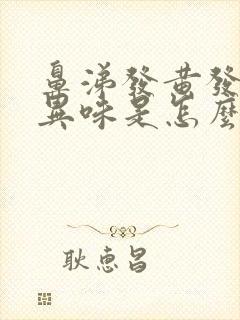 鼻涕發黃發
異味是怎麼
耿惠昌